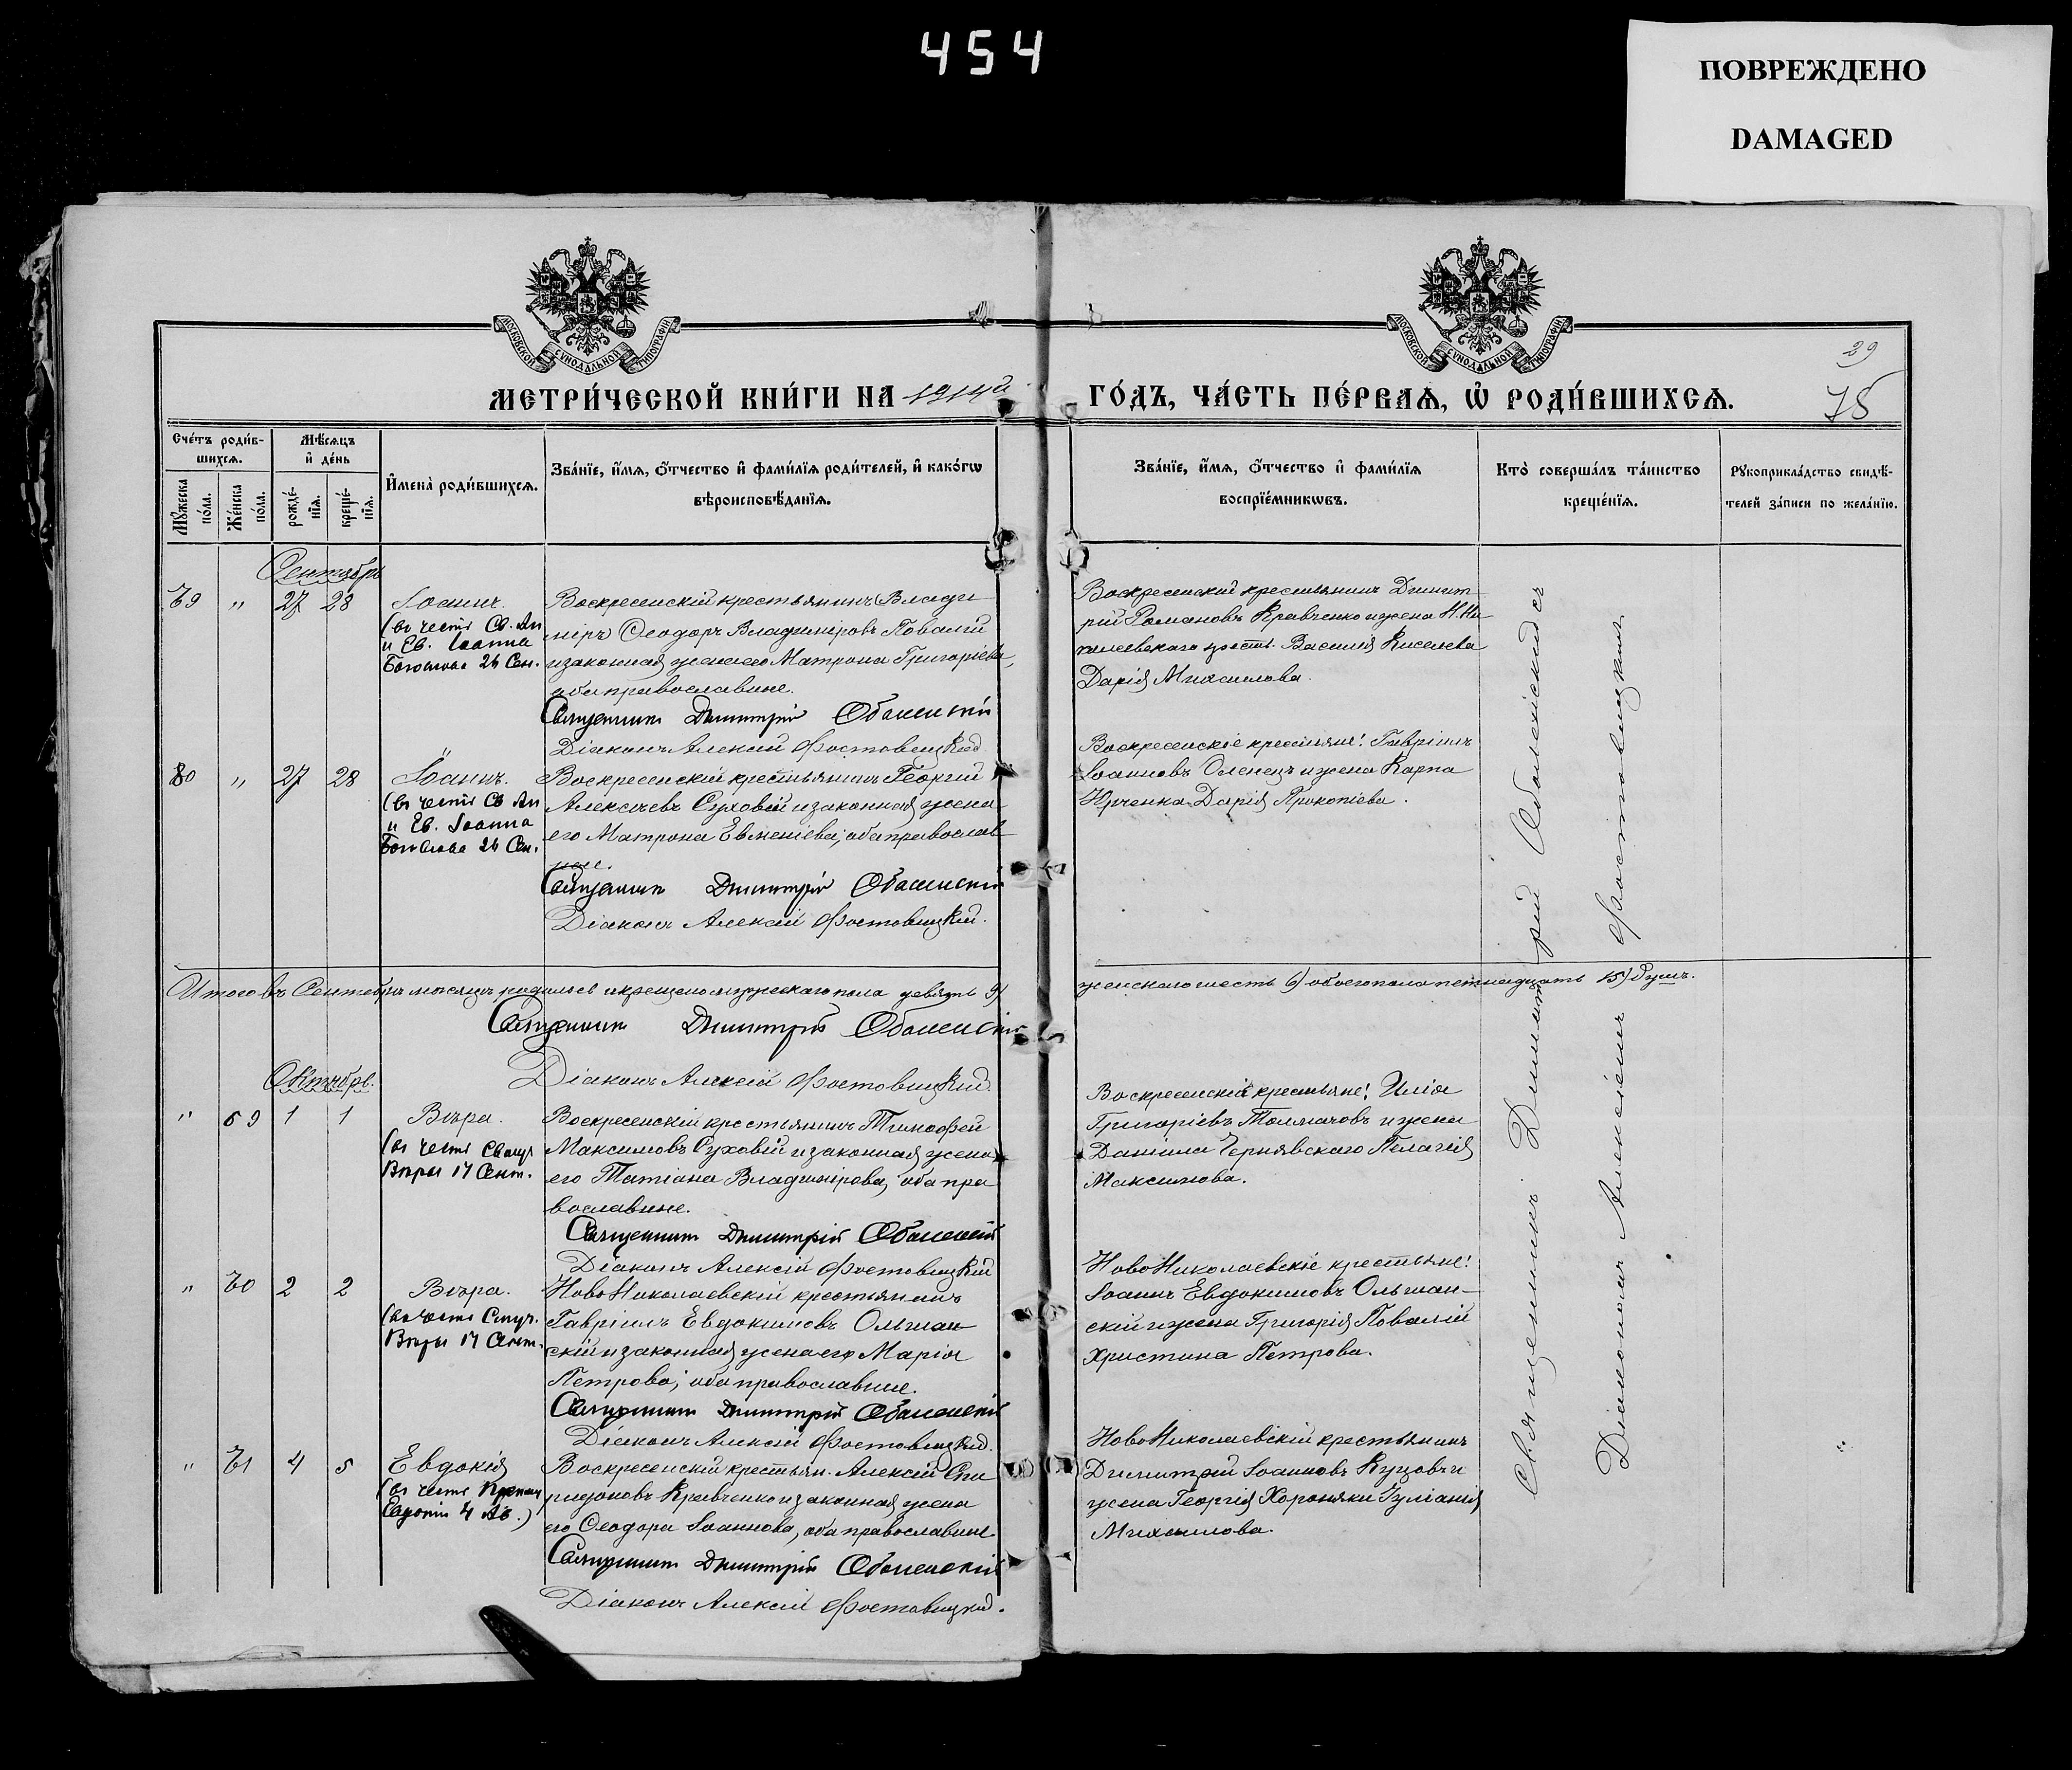 454
ПОВРЕЖДЕНО
DAMAGED
МОСКОВСКОЙ СѴНОДАЛЬНОЙ ТИПОГРАФІИ
МОСКОВСКОЙ СѴНОДАЛЬНОЙ ТИПОГРАФІИ
29
75
МЕТРИ́ЧЕСКОЙ КНИ́ГИ НА 1914й ГО́ДЪ, ЧА́СТЬ ПЕ́РВАЯ, Ѡ҆ РОДИ́ВШИХСЯ.
Сче́тъ роди́в-
шихся.
Мѣ́сяцъ
и҆ де́нь
Мꙋ́жеска по́ла.
Же́нска по́ла.
рожде́-
нїѧ.
креще́-
нїѧ.
И҆мена̀ роди́вшихся.
Зва́нїе, и҆́мя, ѻ҆́тчество и҆ фами́лїѧ роди́телей, и҆ како́гѡ
вѣроисповѣ́данїѧ.
Зва́нїе, и҆́мя, ѻ҆́тчество и҆ фами́лїѧ
воспрїе́мникѡвъ.
Кто̀ соверша́лъ та́инство
креще́нїѧ.
Рꙋкоприкла́дство свидѣ́-
телей за́писи по жела́нїю.
Сентябрь
79 " 27 28 Іоаннъ.
(въ честь Св. Ап
и Ев. Іоанна
Богослова 26 Сен.
Воскресенскій крестьянинъ Влади
міръ Ѳеодоръ Владиміровъ Повалій
и законная жена его Матрона Григоріева,
оба православные.
Священникъ Димитрій Оболенскій
Діаконъ Алексій Фостовицкій
Воскресенскій крестьянинъ Димит
рій Романовъ Кравченко и жена Н. Ни
колаевскаго крест. Василія Киселева
Дарія Михаилова.
80 " 27 28 Іоаннъ.
(въ честь Св Ап
и Ев. Іоанна
Богослова 26 Сен.
Воскресенскій крестьянинъ Георгій
Алексѣевъ Суховій и законная жена
его Матрона Евменіева, оба православ
ные.
Священникъ Димитрій Оболенскій
Діаконъ Алексій Фостовицкій.
Воскресенскіе крестьяне: Гавріилъ
Іоанновъ Оленецъ и жена Карпа
Юрченка Дарія Прокопіева.
Итого въ Сентябрѣ мѣсяцѣ родилось и крещено мужескаго пола девять 9)
женскаго шесть 6) обоего пола пятнадцать 15) душъ.
Священникъ Димитрій Оболенскій
Діаконъ Алексій Фостовицкій.
Октябрь.
" 69 1 1 Вѣра.
(въ честь Свмуч
Вѣры 17 Сент.
Воскресенскій крестьянинъ Тимоѳей
Максимовъ Суховій и законная жена
его Татіана Владимірова, оба пра
вославные.
Священникъ Димитрій Оболенскій
Діаконъ Алексій Фостовицкій
Воскресенскіе крестьяне: Илія
Григоріевъ Толмачовъ и жена
Даніила Чернявскаго Пелагія
Максимова.
" 70 2 2 Вѣра.
(въ честь Смуч.
Вѣры 17 Сент.
НовоНиколаевскій крестьянинъ
Гавріилъ Евдокимовъ Ольшан
скій и законная жена его Марія
Петрова, оба православные.
Священникъ Димитрій Оболенскій
Діаконъ Алексій Фостовицкій.
НовоНиколаевскіе крестьяне:
Іоаннъ Евдокимовъ Ольшан-
скій и жена Григорія Повалій
Христина Петрова.
" 71 4 5 Евдокія
(въ честь
Евдокіи 4 Ав.)
Воскресенскій крестьян. Алексій Спи
ридоновъ Кравченко и законная жена
его Ѳеодора Іоаннова, оба православные.
Священникъ Димитрій Оболенскій
Діаконъ Алексій Фостовицкій.
НовоНиколаевскій крестьянинъ
Димитрій Іоанновъ и
жена Георгія Хороняки Іуліанія
Михаилова.
Священникъ Димитрій Оболенскій съ
Діакономъ Алексіемъ Фостовицкимъ.